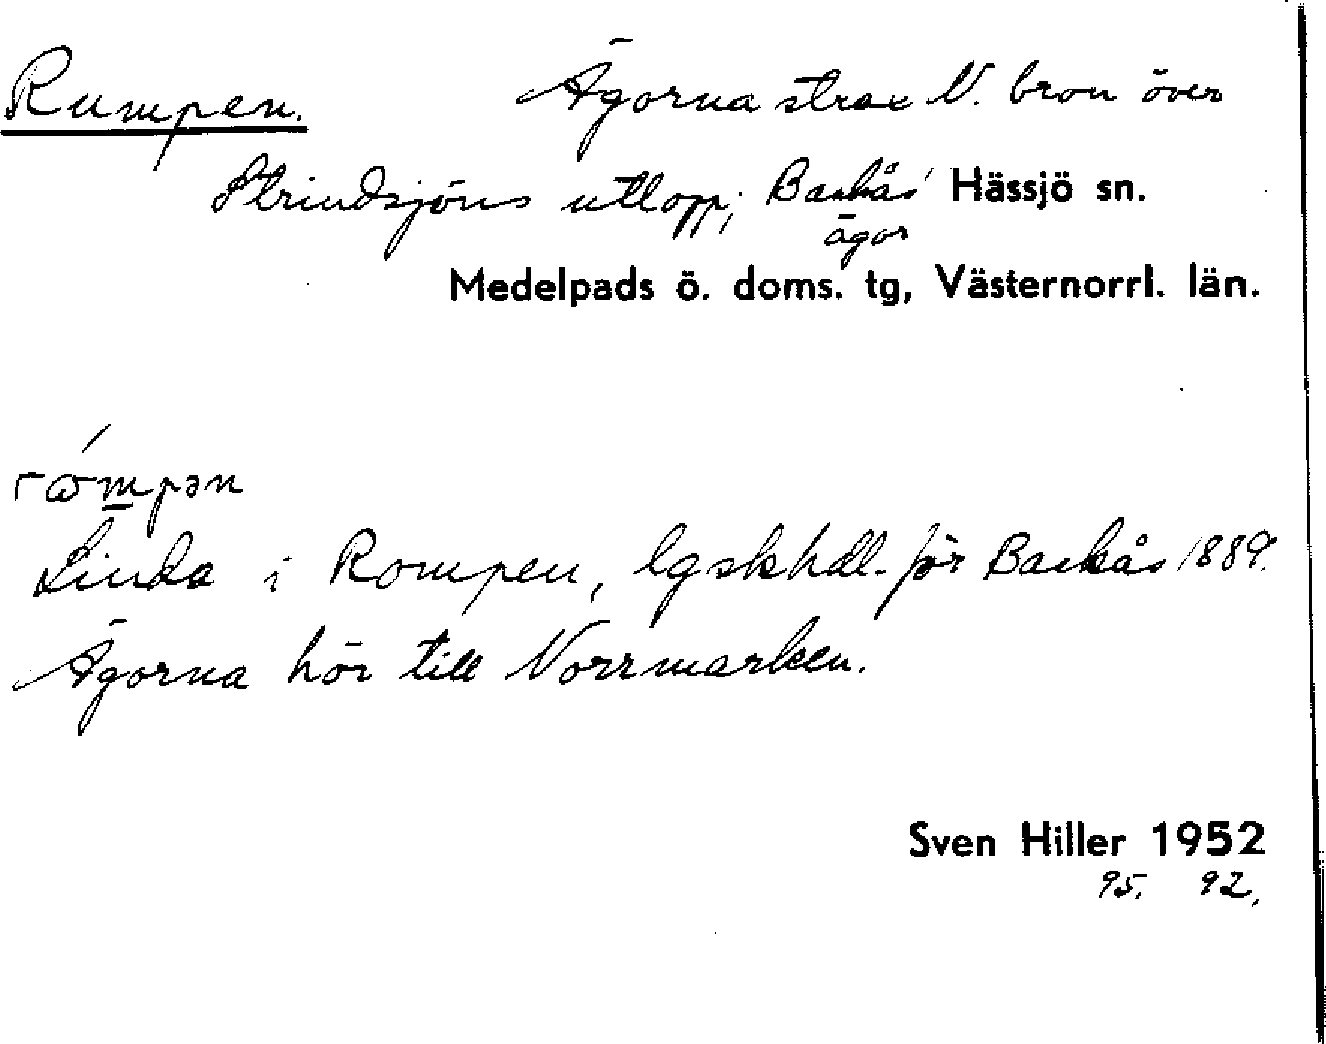 Rumpen. Ägorna strax N. bron över
Strindsjöns utlopp; Backås' Hässjö sn.
ägor
Medelpads ö. doms. tg, Västernorrl. län.
Linda i Rompen, lgskhdl. för Backås 1889.
Ägorna hör till Norrmarken.
Sven Hiller 1952
95. 92.